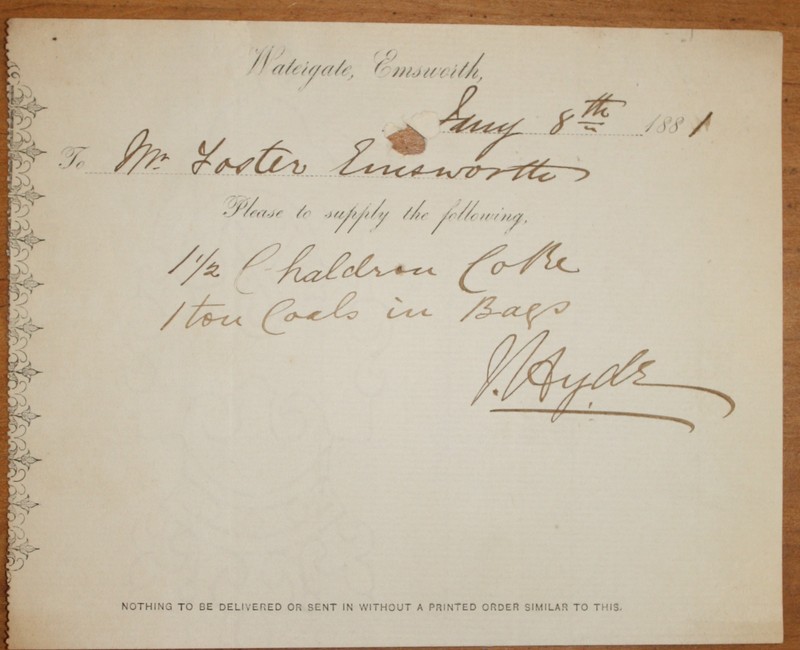 Watergate, Emsworth,
Jany 8th 1881
To Mr Foster Emsworth
Please to supply the following,
1 1/2 Chaldron Coke
1 ton Coals in Bags
J. Hyde
NOTHING TO BE DELIVERED OR SENT IN WITHOUT A PRINTED ORDER SIMILAR TO THIS.